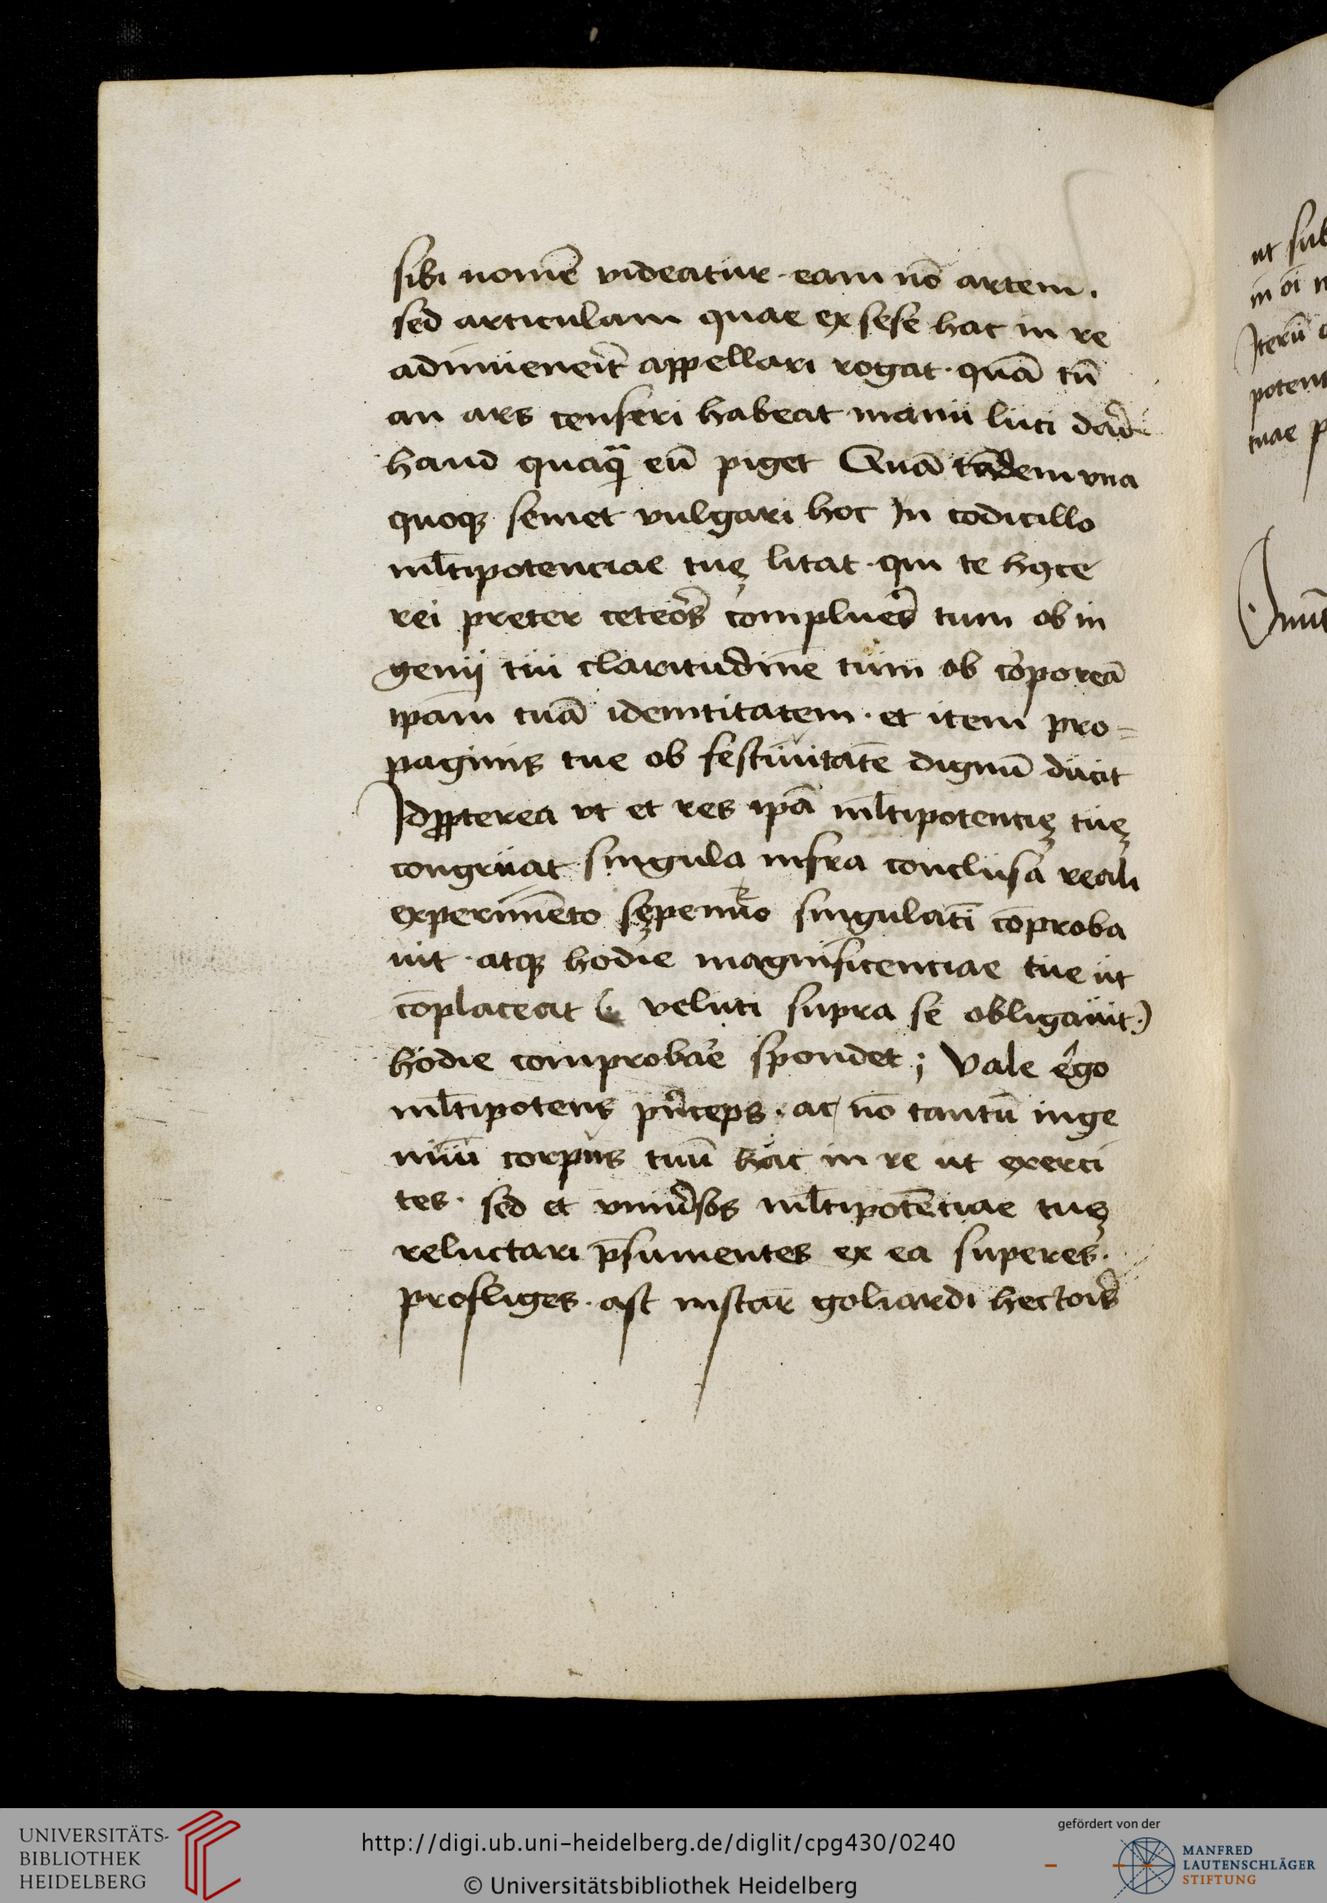 sibi nomē videatur · eam nō artem .
sed articulam quae ex sese hac in re
adinuenerit appellari rogat · quā tū
an ars censeri habeat manu luci
haud quaq̄ eū piget Quā tādem vna
quoqꝫ semet vulgari hoc In codicillo
ml̄tipotenciae tuę litat · qui te
rei preter ceteōs complues tum ob in
genij tui claritudinē tum ob corporeā
ipam tuā idemtitatem · et item pro=
paginis tue ob festiuitatē dignū ducit
Idpp̄terea vt et res ipā ml̄tipotencię tuę
congruat singula infra conclusa reali
experimēto sępenuō singulatī cōproba
uit · atqꝫ hodie magnificenciae tue ut
cōplaceat ( veluti supra se obligauit · )
hodie comprobāe spondet ; Vale ergo
ml̄tipotens prīceps · ac nō tantū inge
niū corpus tuū hac in re ut exerci
tes · sed et vniūsos ml̄tipotēciae tuę
reluctari p̄sumentes ex ea superes ·
profliges · ast instar goliardi hectoris
ut sub
in oi
Iterū
potent
tuae p
UNIVERSITÄTS-
BIBLIOTHEK
HEIDELBERG
http://digi.ub.uni-heidelberg.de/diglit/cpg430/0240
© Universitätsbibliothek Heidelberg
gefördert von der
MANFRED
LAUTENSCHLÄGER
STIFTUNG